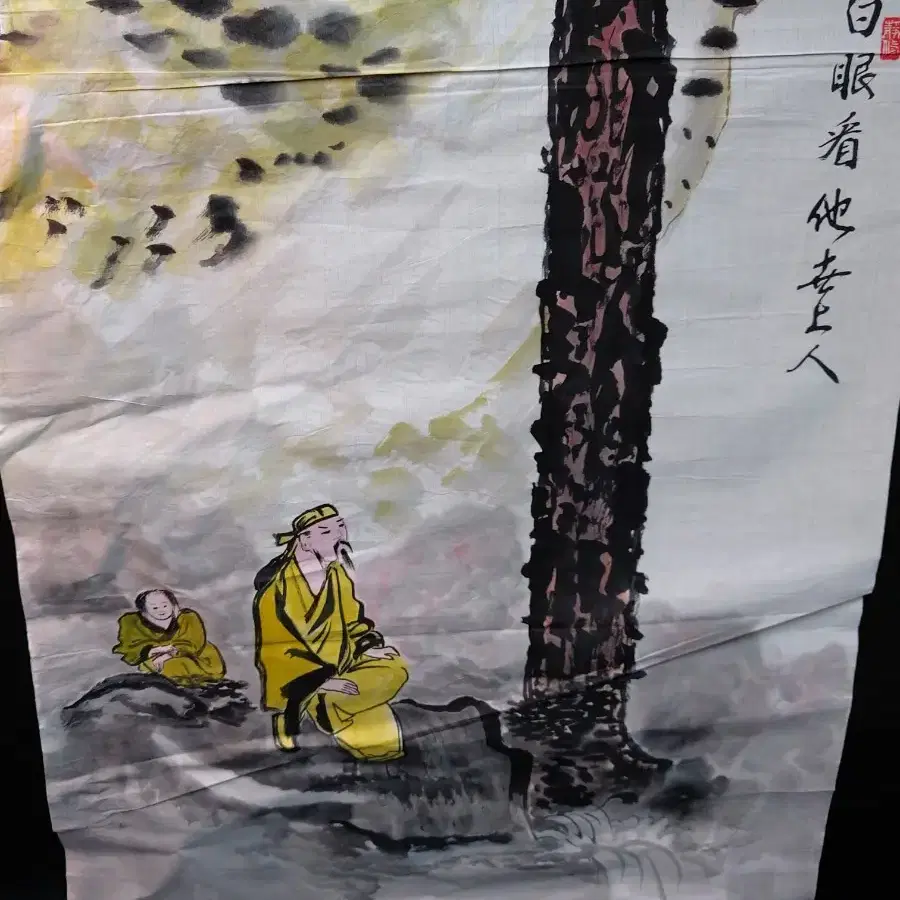 白眼看他世上人